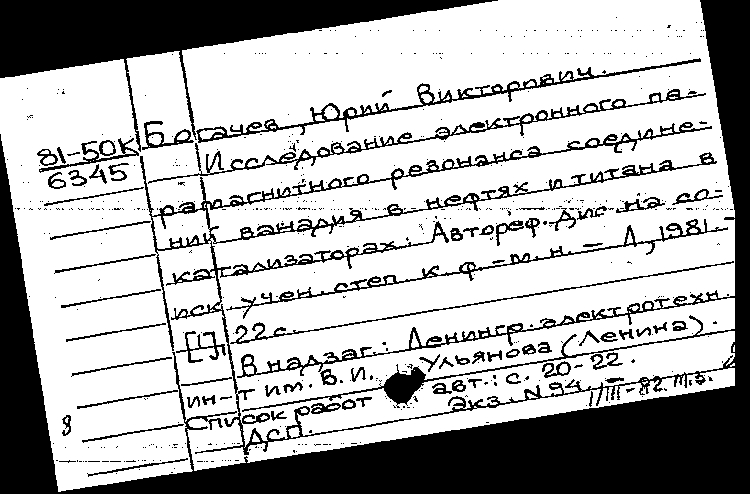 81-50К
6345
Богачев, Юрий Викторович.
Исследование электронного па-
рамагнитного резонанса соедине-
ний ванадия в нефтях и титана в
катализаторах: Автореф. дис. на со-
иск. учен. степ. к. ф.-м. н. - Л., 1981. -
[ ], 22 с.
В надзаг.: Ленингр. электротехн.
ин-т им. В. И. Ульянова (Ленина).
Список работ авт.: с. 20-22.
ДСП. Экз. N 94.
8 11/III-82